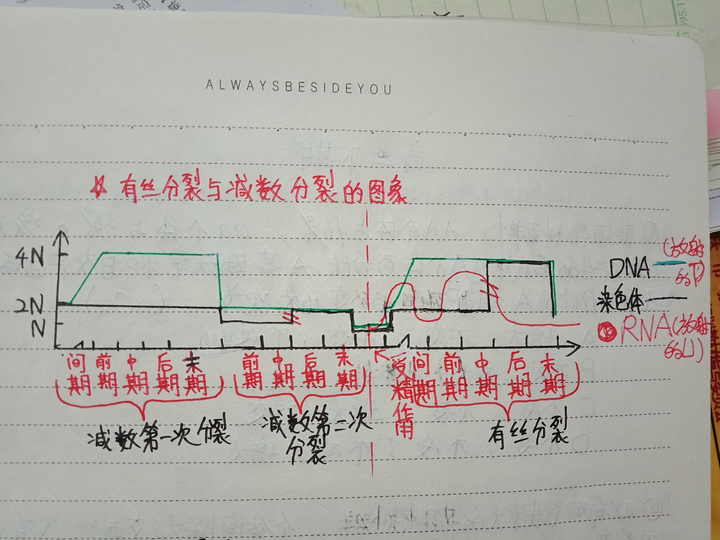 ALWAYSBESIDEYOU
☆ 有丝分裂与减数分裂的图象
4N
2N
N
DNA (放射的T)
染色体
RNA (放射的U)
间期 前期 中期 后期 末期
前期 中期 后期 末期
受精作用
间期 前期 中期 后期 末期
减数第一次分裂
减数第二次分裂
有丝分裂